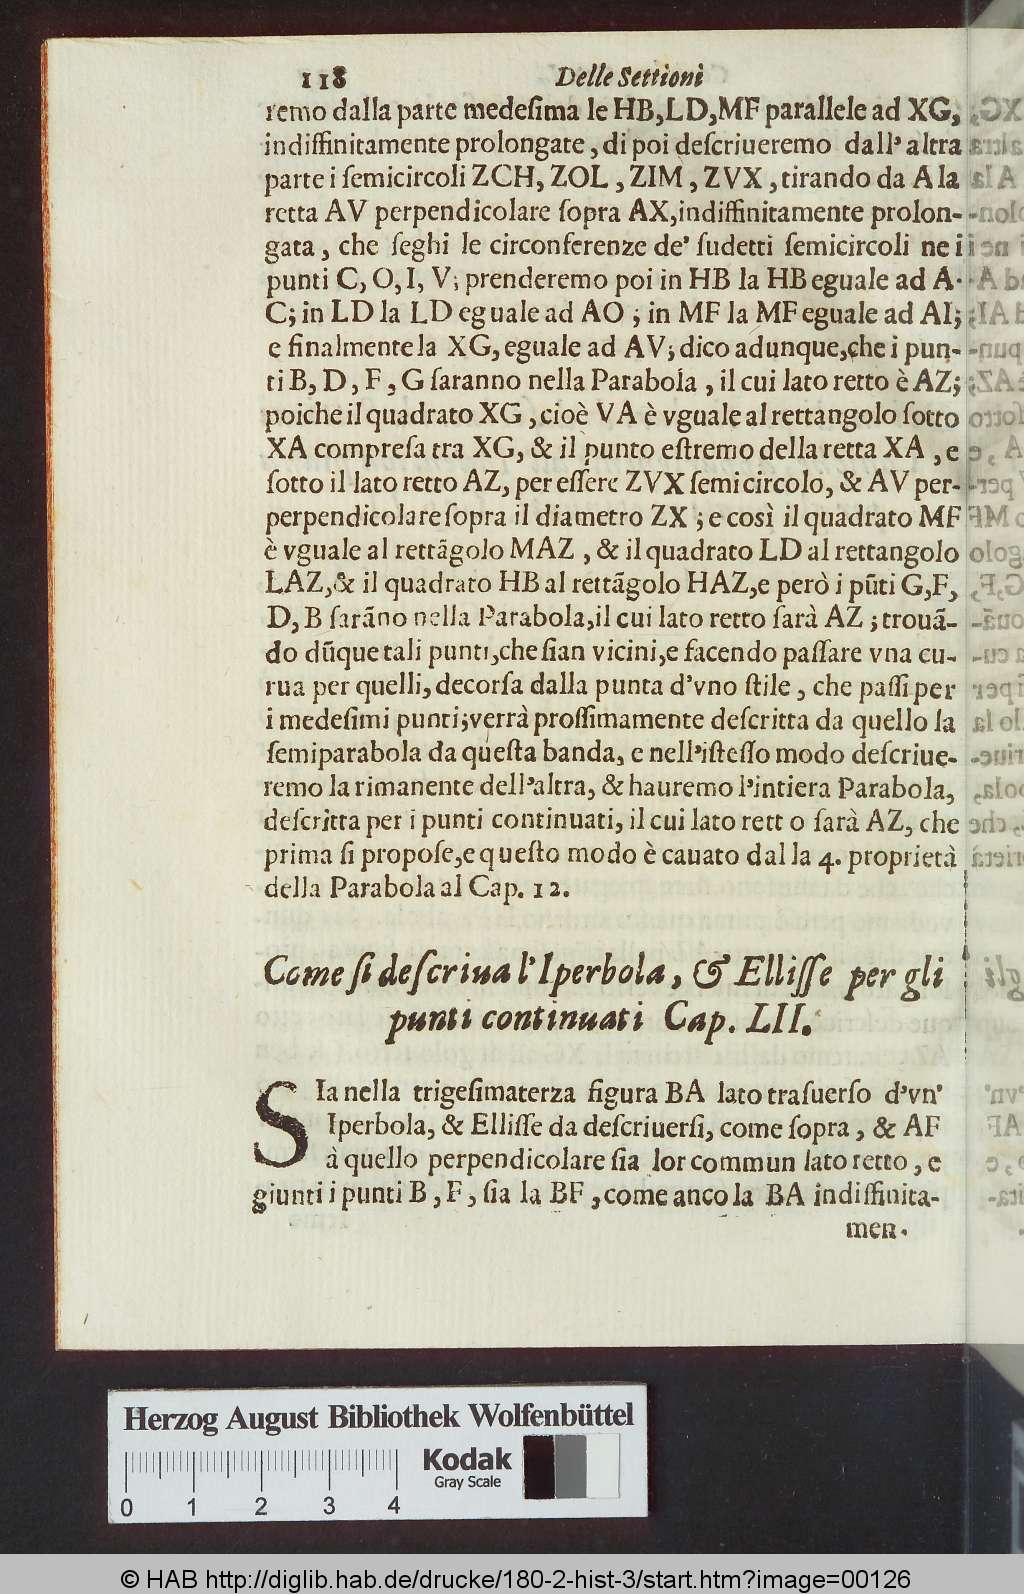 118 Delle Settioni
remo dalla parte medeſima le HB, LD, MF parallele ad XG,
indiffinitamente prolongate, di poi deſcriueremo dall' altra
parte i ſemicircoli ZCH, ZOL, ZIM, ZVX, tirando da A la
retta AV perpendicolare ſopra AX, indiffinitamente prolon-
gata, che ſeghi le circonferenze de' ſudetti ſemicircoli ne i
punti C, O, I, V; prenderemo poi in HB la HB eguale ad A-
C; in LD la LD eguale ad AO; in MF la MF eguale ad AI;
e finalmente la XG, eguale ad AV; dico adunque, che i pun-
ti B, D, F, G ſaranno nella Parabola, il cui lato retto è AZ;
poiche il quadrato XG, cioè VA è vguale al rettangolo ſotto
XA compreſa tra XG, & il punto eſtremo della retta XA, e
ſotto il lato retto AZ, per eſſere ZVX ſemicircolo, & AV per-
perpendicolare ſopra il diametro ZX; e così il quadrato MF
è vguale al rettãgolo MAZ, & il quadrato LD al rettangolo
LAZ, & il quadrato HB al rettãgolo HAZ, e però i pũti G, F,
D, B ſarãno nella Parabola, il cui lato retto ſarà AZ; trouã-
do dũque tali punti, che ſian vicini, e facendo paſſare vna cu-
rua per quelli, decorſa dalla punta d'vno ſtile, che paſſi per
i medeſimi punti; verrà proſſimamente deſcritta da quello la
ſemiparabola da queſta banda, e nell'iſteſſo modo deſcriue-
remo la rimanente dell'altra, & hauremo l'intiera Parabola,
deſcritta per i punti continuati, il cui lato retto ſarà AZ, che
prima ſi propoſe, e queſto modo è cauato dalla 4. proprietà
della Parabola al Cap. 12.
Come ſi deſcriua l'Iperbola, & Elliſſe per gli
punti continuati Cap. LII.
SIa nella trigeſimaterza figura BA lato traſuerſo d'vn'
Iperbola, & Elliſſe da deſcriuerſi, come ſopra, & AF
à quello perpendicolare ſia lor commun lato retto, e
giunti i punti B, F, ſia la BF, come anco la BA indiffinita-
men-
Herzog August Bibliothek Wolfenbüttel
Kodak
Gray Scale
0 1 2 3 4
© HAB http://diglib.hab.de/drucke/180-2-hist-3/start.htm?image=00126